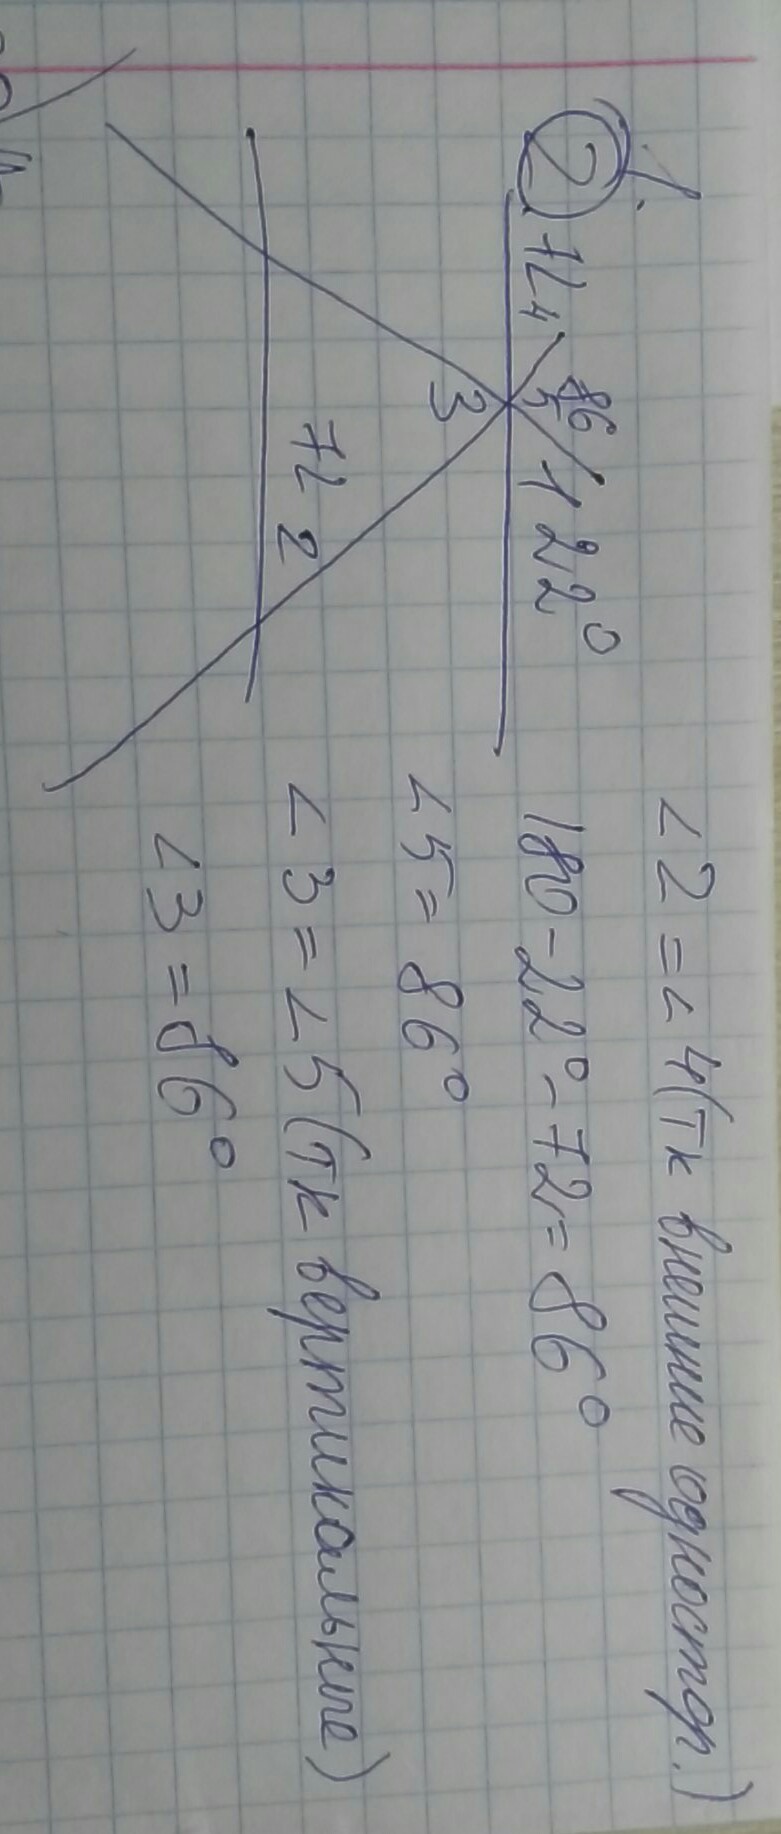 2
72 4 86 5 1 22°
3
72 2
∠2 = ∠4 (тк внешние одностор.)
180-22°-72=86°
∠5 = 86°
∠3 = ∠5 (тк вертикальные)
∠3 = 86°